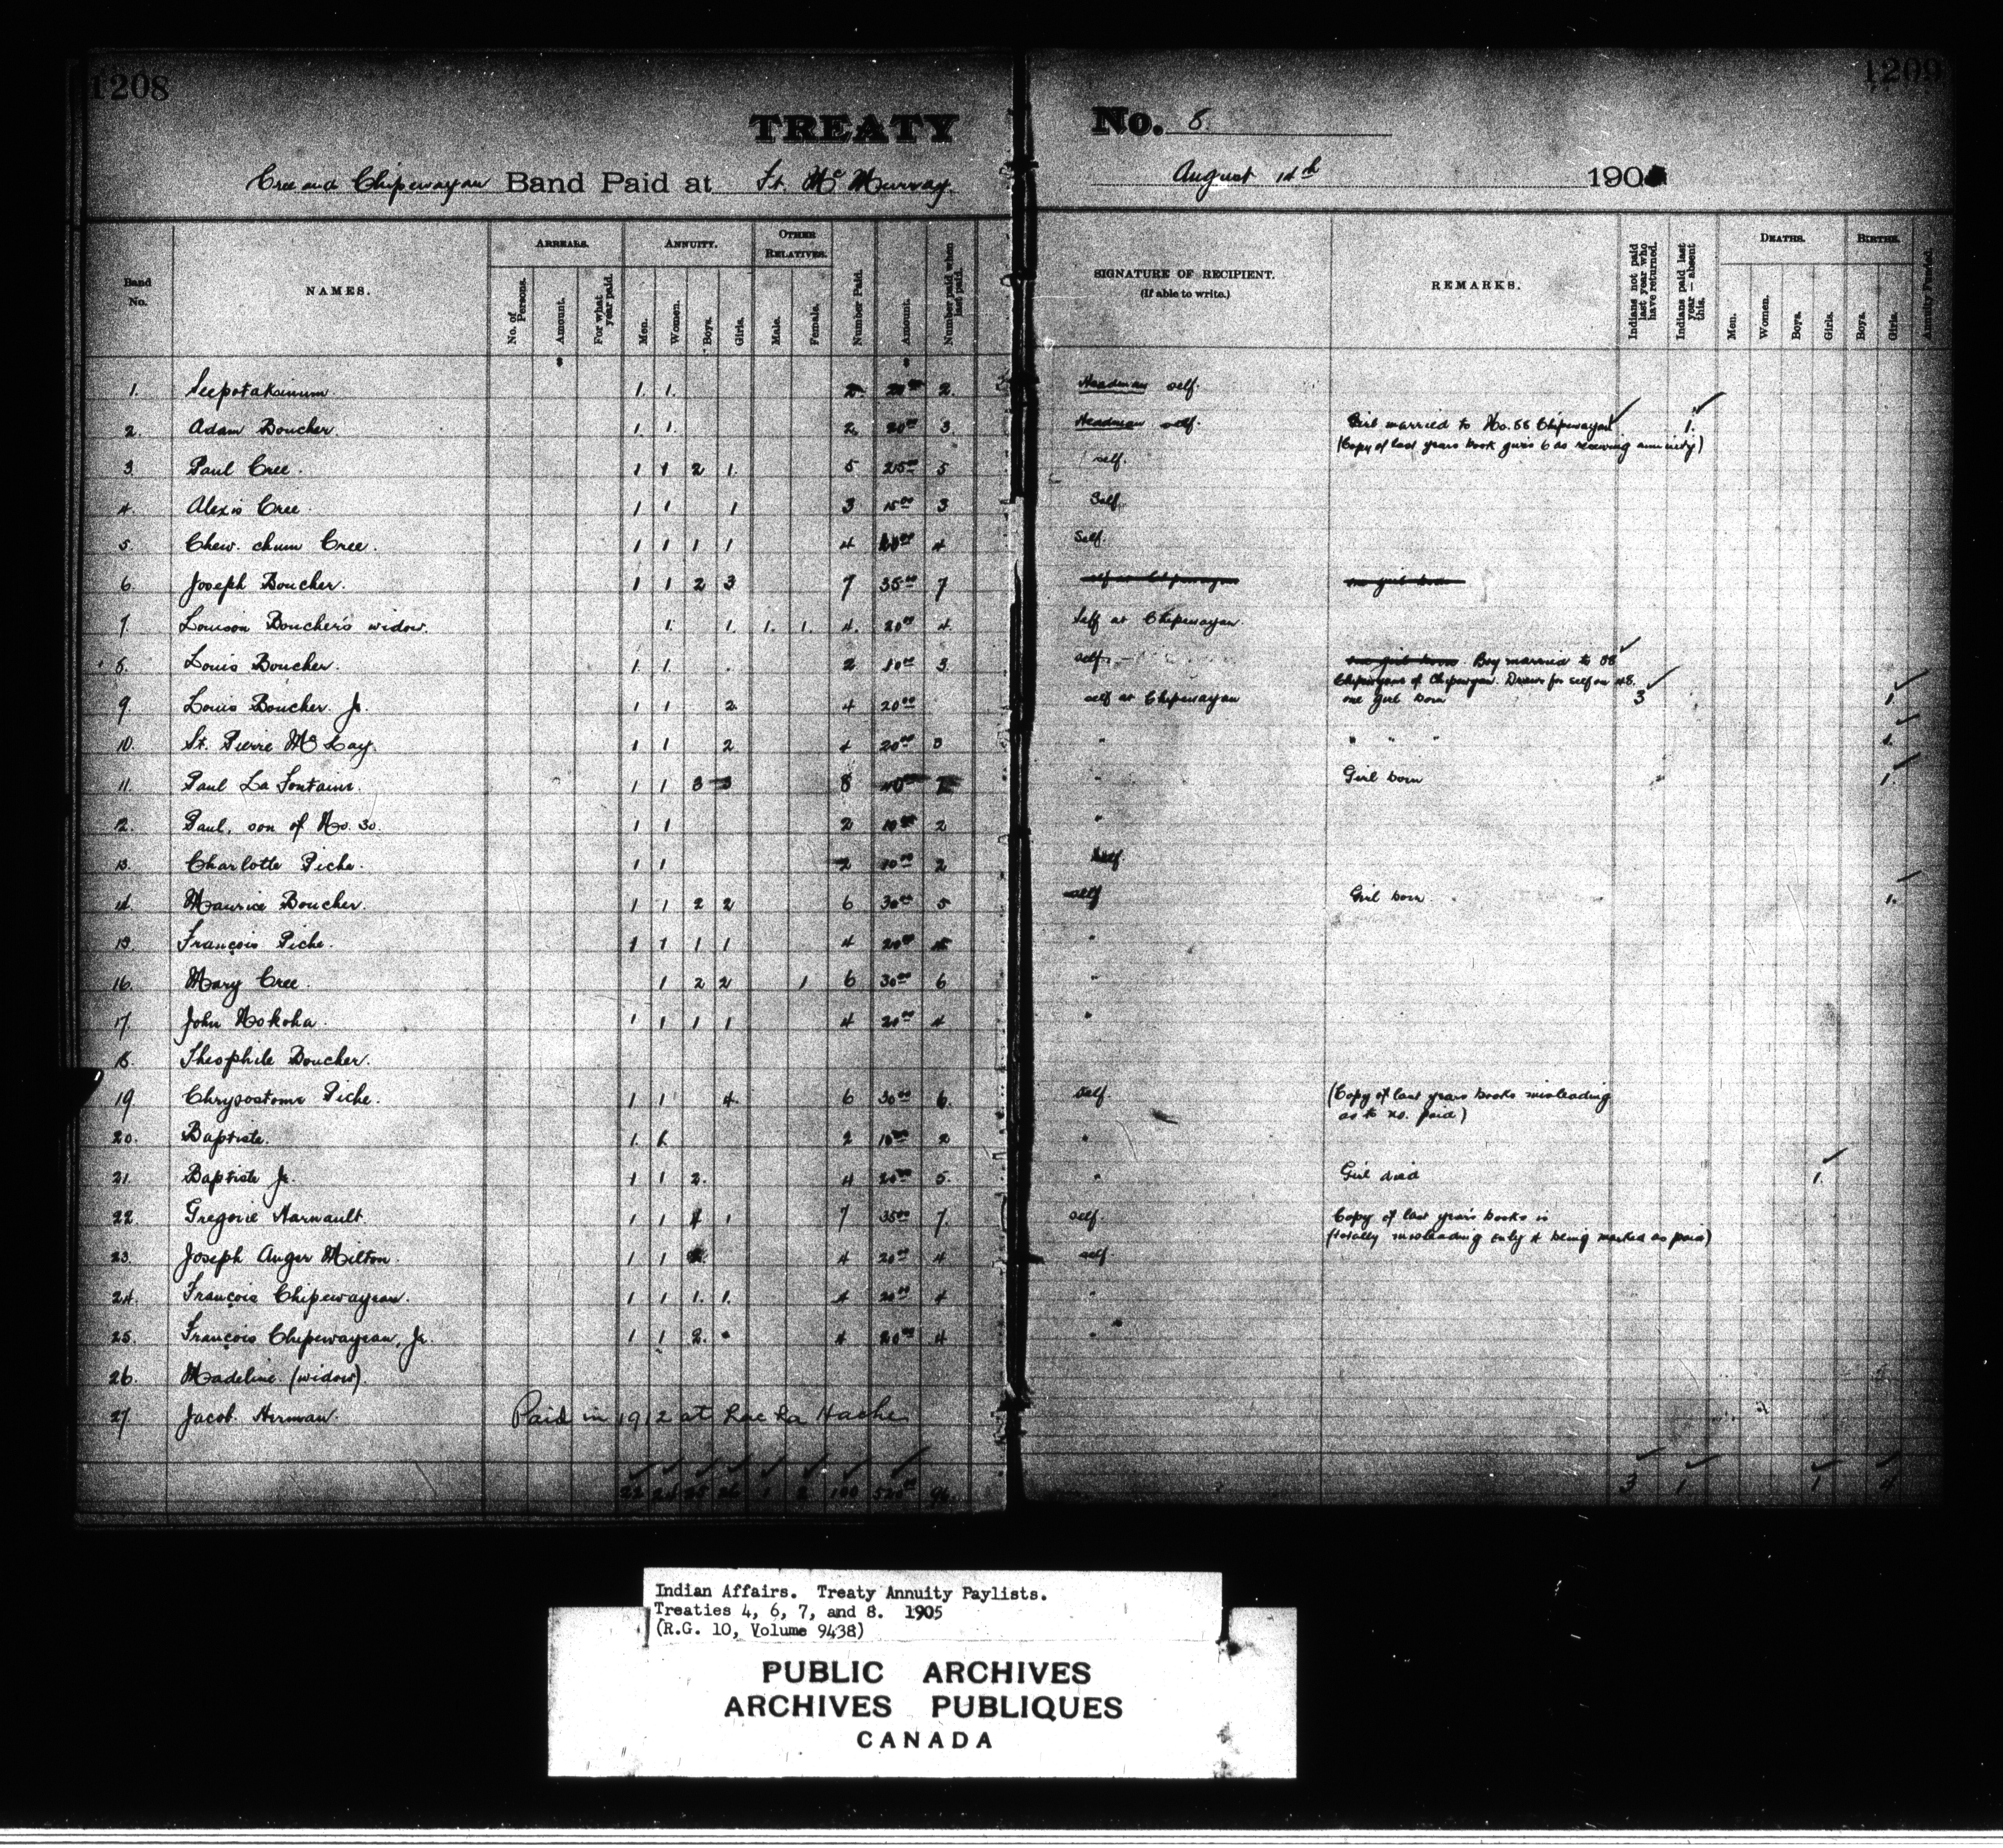 1208
1209
TREATY No. 8.
Cree and Chipewayan Band Paid at Ft. McMurray. August 14th 190
Band No.
NAMES.
ARREARS.
No. of Persons.
Amount.
For what year paid.
ANNUITY.
Men.
Women.
Boys.
Girls.
OTHER RELATIVES.
Male.
Female.
Number Paid.
Amount.
Number paid when last paid.
SIGNATURE OF RECIPIENT.
(If able to write.)
REMARKS.
Indians not paid last year who have returned.
Indians paid last year — absent this.
DEATHS.
Men.
Women.
Boys.
Girls.
BIRTHS.
Boys.
Girls.
Annuity Funded.
$ $
1. Seepotakinum 1. 1. 2. 2. Headman self.
2. Adam Boucher. 1 1. 2. 20.00 3. Headman self. Girl married to No. 58 Chipewayan 1.
(Copy of last years book gives 6 as receiving annuity)
3. Paul Cree. 1 1 2 1. 5 25.00 5 self.
4. Alexis Cree. 1 1 1 3 15.00 3 Self.
5. Chew. chum Cree. 1 1 1 1 4 20.00 4 Self.
6. Joseph Boucher. 1 1 2 3 7 35.00 7
7. Louison Boucher's widow. 1. 1. 1. 1. 4. 20.00 4. Self at Chipewayan.
8. Louis Boucher. 1 1. 2 10.00 3. self. Boy married to 88
Chipewyans of Chipewyan. Draws for self on 48.
9. Louis Boucher Jr. 1 1 2. 4 20.00 self at Chipewayan one girl born 3 1.
10. St. Pierre McKay. 1 1 2 4 20.00 3 " " " " 1.
11. Paul La Fontaine. 1 1 3 3 8 40.00 7 " Girl born 1.
12. Paul, son of No. 30. 1 1 2 10.00 2 "
13. Charlotte Piche. 1 1 2 10.00 2 Self.
14. Maurice Boucher. 1 1 2 2 6 30.00 5 self Girl born. 1.
15. François Piche. 1 1 1 1 4 20.00 "
16. Mary Cree. 1 2 2 1 6 30.00 6 "
17. John Nokoha. 1 1 1 1 4 20.00 4 "
18. Theophile Boucher.
19 Chrysostome Piche. 1 1 4. 6 30.00 6. self. (Copy of last years books misleading
as to no. paid)
20. Baptiste. 1. 1. 2 10.00 2 "
21. Baptiste Jr. 1 1 2. 4 20.00 5. " Girl died 1.
22. Gregoire Harnault. 1 1 4 1 7 35.00 7. self. Copy of last year's books is
(totally misleading only 4 being marked as paid)
23. Joseph Auger Milton. 1 1 4 20.00 4 self
24. François Chipewayean. 1 1 1. 1. 4 20.00 4 "
25. François Chipewayean, Jr. 1 1 2. 4 20.00 4 "
26. Madeline (widow).
27 Jacob Herman. Paid in 1912 at Lac La Hache
22 24 25 26 1 2 100 520.00 96. 3 1 1 4
Indian Affairs. Treaty Annuity Paylists.
Treaties 4, 6, 7, and 8. 1905
(R.G. 10, Volume 9438)
PUBLIC ARCHIVES
ARCHIVES PUBLIQUES
CANADA